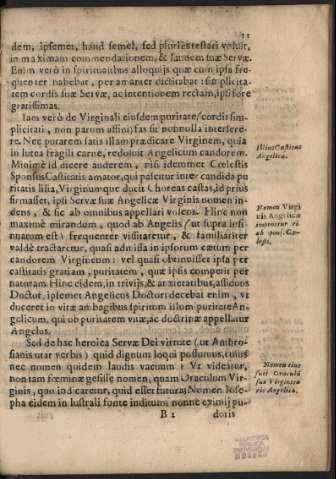 11
dem, ipsemet, haud semel, sed pluries testari voluit,
in maximam commendationem, & laudem suæ Servæ.
Enim verò in spiritualibus alloquijs quæ cum ipsa fre-
quenter habebat, per amanter dictitabat: simplicita-
tem cordis suæ Servæ, ac intentionem rectam, ipsi fore
gratissimas.
Iam verò de Virginali eiusdem puritate, cordis sim-
plicitati, non parum affini, fas sit nonnulla interfere-
re. Nec putarem satis illam prædicare Virginem, quia
in lutea fragili carne, redoluit Angelicum candorem.
Minimè id dicere auderem, nisi idemmet Cœlestis
Sponsus Castitatis amator, qui pascitur inter candida pu
ritatis lilia, Virginumque ducit Choreas castas, id prius
firmasset, ipsi Servæ suæ Angelicæ Virginis nomen in-
dens, & sic ab omnibus appellari volens. Hinc non
maximè mirandum, quod ab Angelis (ut supra insi-
nuatum est) frequenter visitaretur, & familiariter
valdè tractaretur, quasi admissa in ipsorum cœtum per
candorem Virgineum: vel quasi obtinuisset ipsa per
castitatis gratiam, puritatem, quæ ipsis competit per
naturam. Hinc eidem, in trivijs, & anxietatibus, assiduus
Doctor, ipsemet Angelicus Doctor: decebat enim, vt
duceret in viræ ambagibus spiritum illum puritate An-
gelicum, qui ob puritatem vitæ, ac doctrinæ appellatur
Angelus.
Sed de hac heroica Servæ Dei virtute (ut Ambro-
sianis utar verbis) quid dignum loqui possumus, cuius
nec nomen quidem laudis vacuum? Vt videatur,
non tam fœminæ gessisse nomen, quam Oraculum Vir-
ginis, quo indicaretur, quid esset futura; Nomen Iose-
pha eidem in lustrali fonte inditum, nonne eximij pu-
B 2 doris
Illius Castitas
Angelica.
Nomen Virgi
nis Angelicæ
imponitur ei
ab spons. Cæ-
lesti.
Nomen eius
fuit Oraculũ
suæ Virginita
tis Angelicæ.